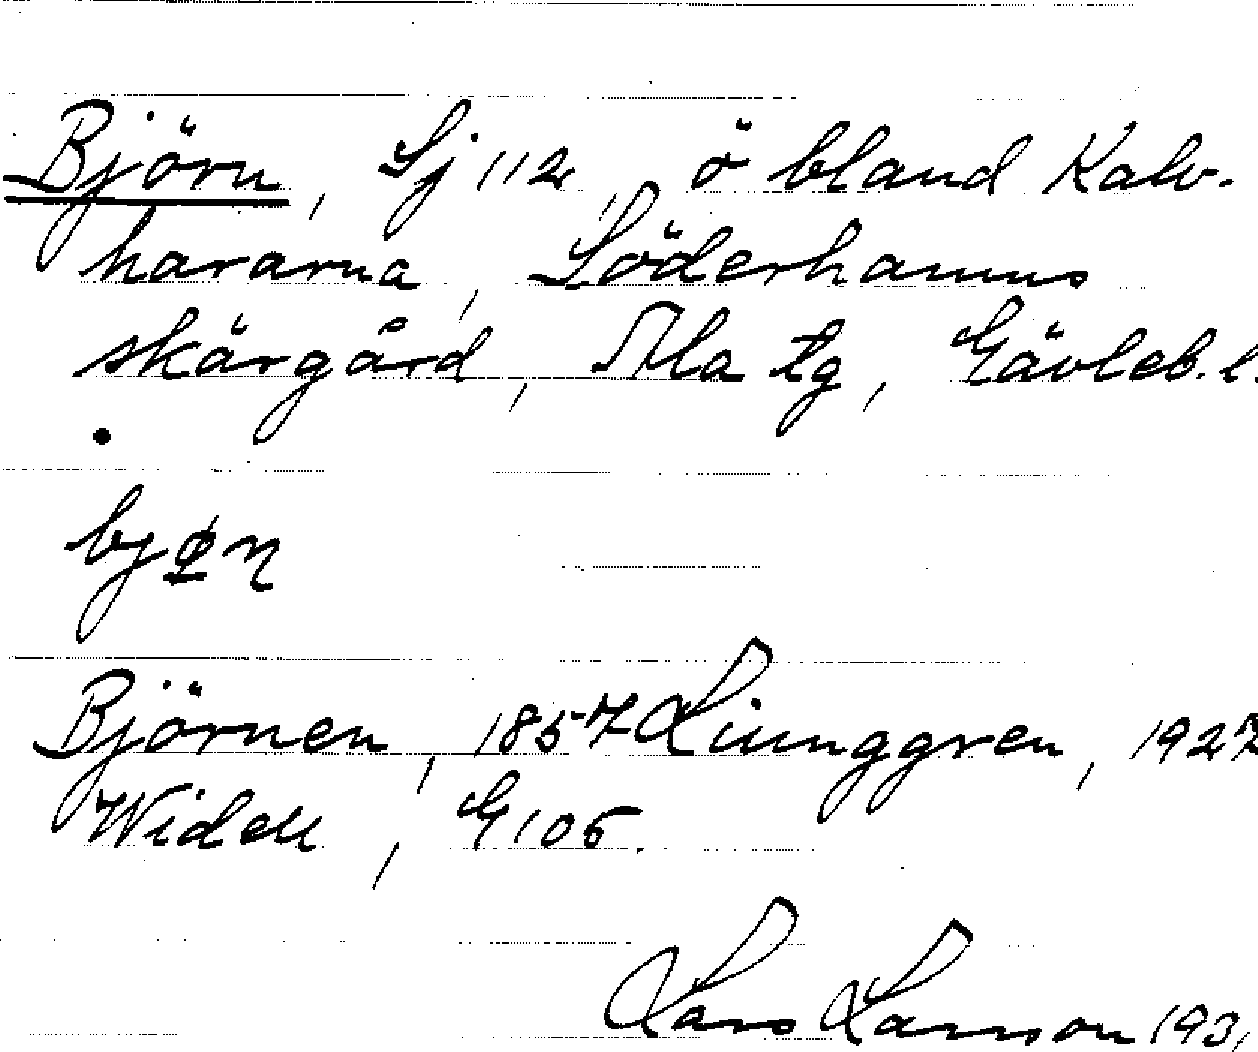 Björn, Sj 112, ö bland Kalv-
hararna, Söderhamns
skärgård, Ala tg, Gävleb. l.
Björnen, 1857 Liunggren, 1927
Widell, G 105.
Lars Larsson 193